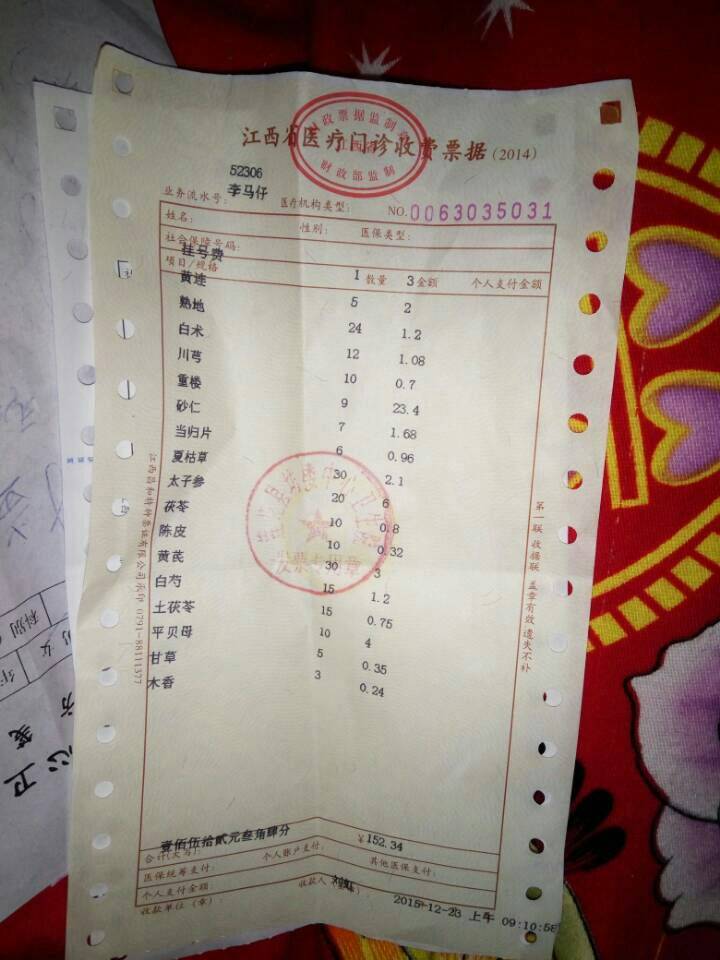 江西省医疗门诊收费票据(2014)
财政票据监制章
江西省
财政部监制
52306
业务流水号: 李马仔 医疗机构类型: NO.0063035031
姓名: 性别: 医保类型:
社会保障号码:
挂号费 1 3
项目/规格 数量 金额 个人支付金额
黄连 5 2
熟地 24 1.2
白术 12 1.08
川芎 10 0.7
重楼 9 23.4
砂仁 7 1.68
当归片 6 0.96
夏枯草 30 2.1
太子参 20 6
茯苓 10 0.8
陈皮 10 0.32
黄芪 30 3
白芍 15 1.2
土茯苓 15 0.75
平贝母 10 4
甘草 5 0.35
木香 3 0.24
发票专用章
壹佰伍拾贰元叁角肆分 ¥152.34
合计(大写):
医保统筹支付: 个人账户支付: 其他医保支付:
个人支付金额:
收款单位(章) 收款人
2015-12-23 上午 09:10:58
江西昌和特种票证有限公司承印 0791-88111377
第一联 收据联 盖章有效 遗失不补
科别
男 女